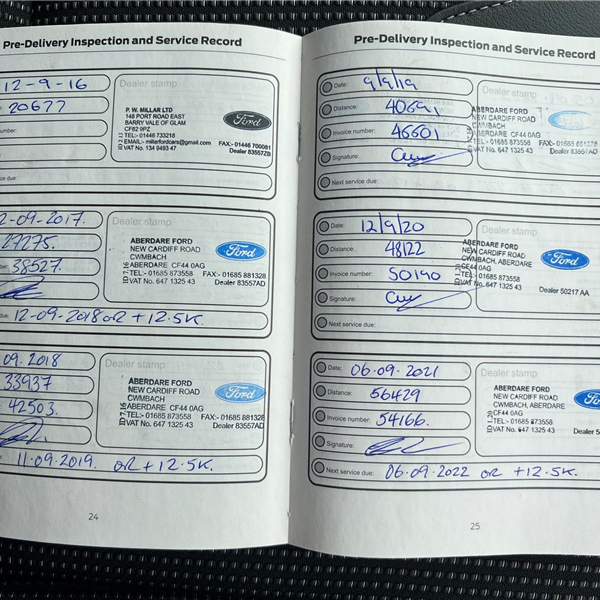 Pre-Delivery Inspection and Service Record
12-9-16
Dealer stamp
20677
P. W. MILLAR LTD
148 PORT ROAD EAST
BARRY VALE OF GLAM
CF62 9PZ
TEL:- 01446 733218
EMAIL:- millarfordcars@gmail.com FAX:-01446 700081
VAT No. 134 9493 47 Dealer 83557ZB
Ford
number:
due:
2-09-2017.
Dealer stamp
27275.
38527.
ABERDARE FORD
NEW CARDIFF ROAD
CWMBACH
ABERDARE CF44 0AG
TEL:- 01685 873558 FAX:- 01685 881328
VAT No. 647 1325 43 Dealer 83557AD
Ford
due: 12-09-2018 OR +12.5K.
09.2018
Dealer stamp
33937
42503.
ABERDARE FORD
NEW CARDIFF ROAD
CWMBACH
ABERDARE CF44 0AG
TEL:- 01685 873558 FAX:- 01685 881328
VAT No. 647 1325 43 Dealer 83557AD
Ford
due: 11.09.2019. OR +12.5K.
24
Pre-Delivery Inspection and Service Record
Date: 9/9/19
Distance: 40691
Invoice number: 46601
Signature:
Next service due:
Dealer stamp
ABERDARE FORD
NEW CARDIFF ROAD
CWMBACH
ABERDARE CF44 0AG
TEL:- 01685 873558 FAX:- 01685 881328
VAT No. 647 1325 43 Dealer 83557AD
Date: 12/9/20
Distance: 48122
Invoice number: 50190
Signature:
Next service due:
Dealer stamp
ABERDARE FORD
NEW CARDIFF ROAD
CWMBACH, ABERDARE
CF44 0AG
TEL:- 01685 873558
VAT No. 647 1325 43 Dealer 50217 AA
Ford
Date: 06.09.2021
Distance: 56429
Invoice number: 54166.
Signature:
Next service due: 06.09.2022 OR +12.5K.
Dealer stamp
ABERDARE FORD
NEW CARDIFF ROAD
CWMBACH, ABERDARE
CF44 0AG
TEL:- 01685 873558
VAT No. 647 1325 43 Dealer 5
25